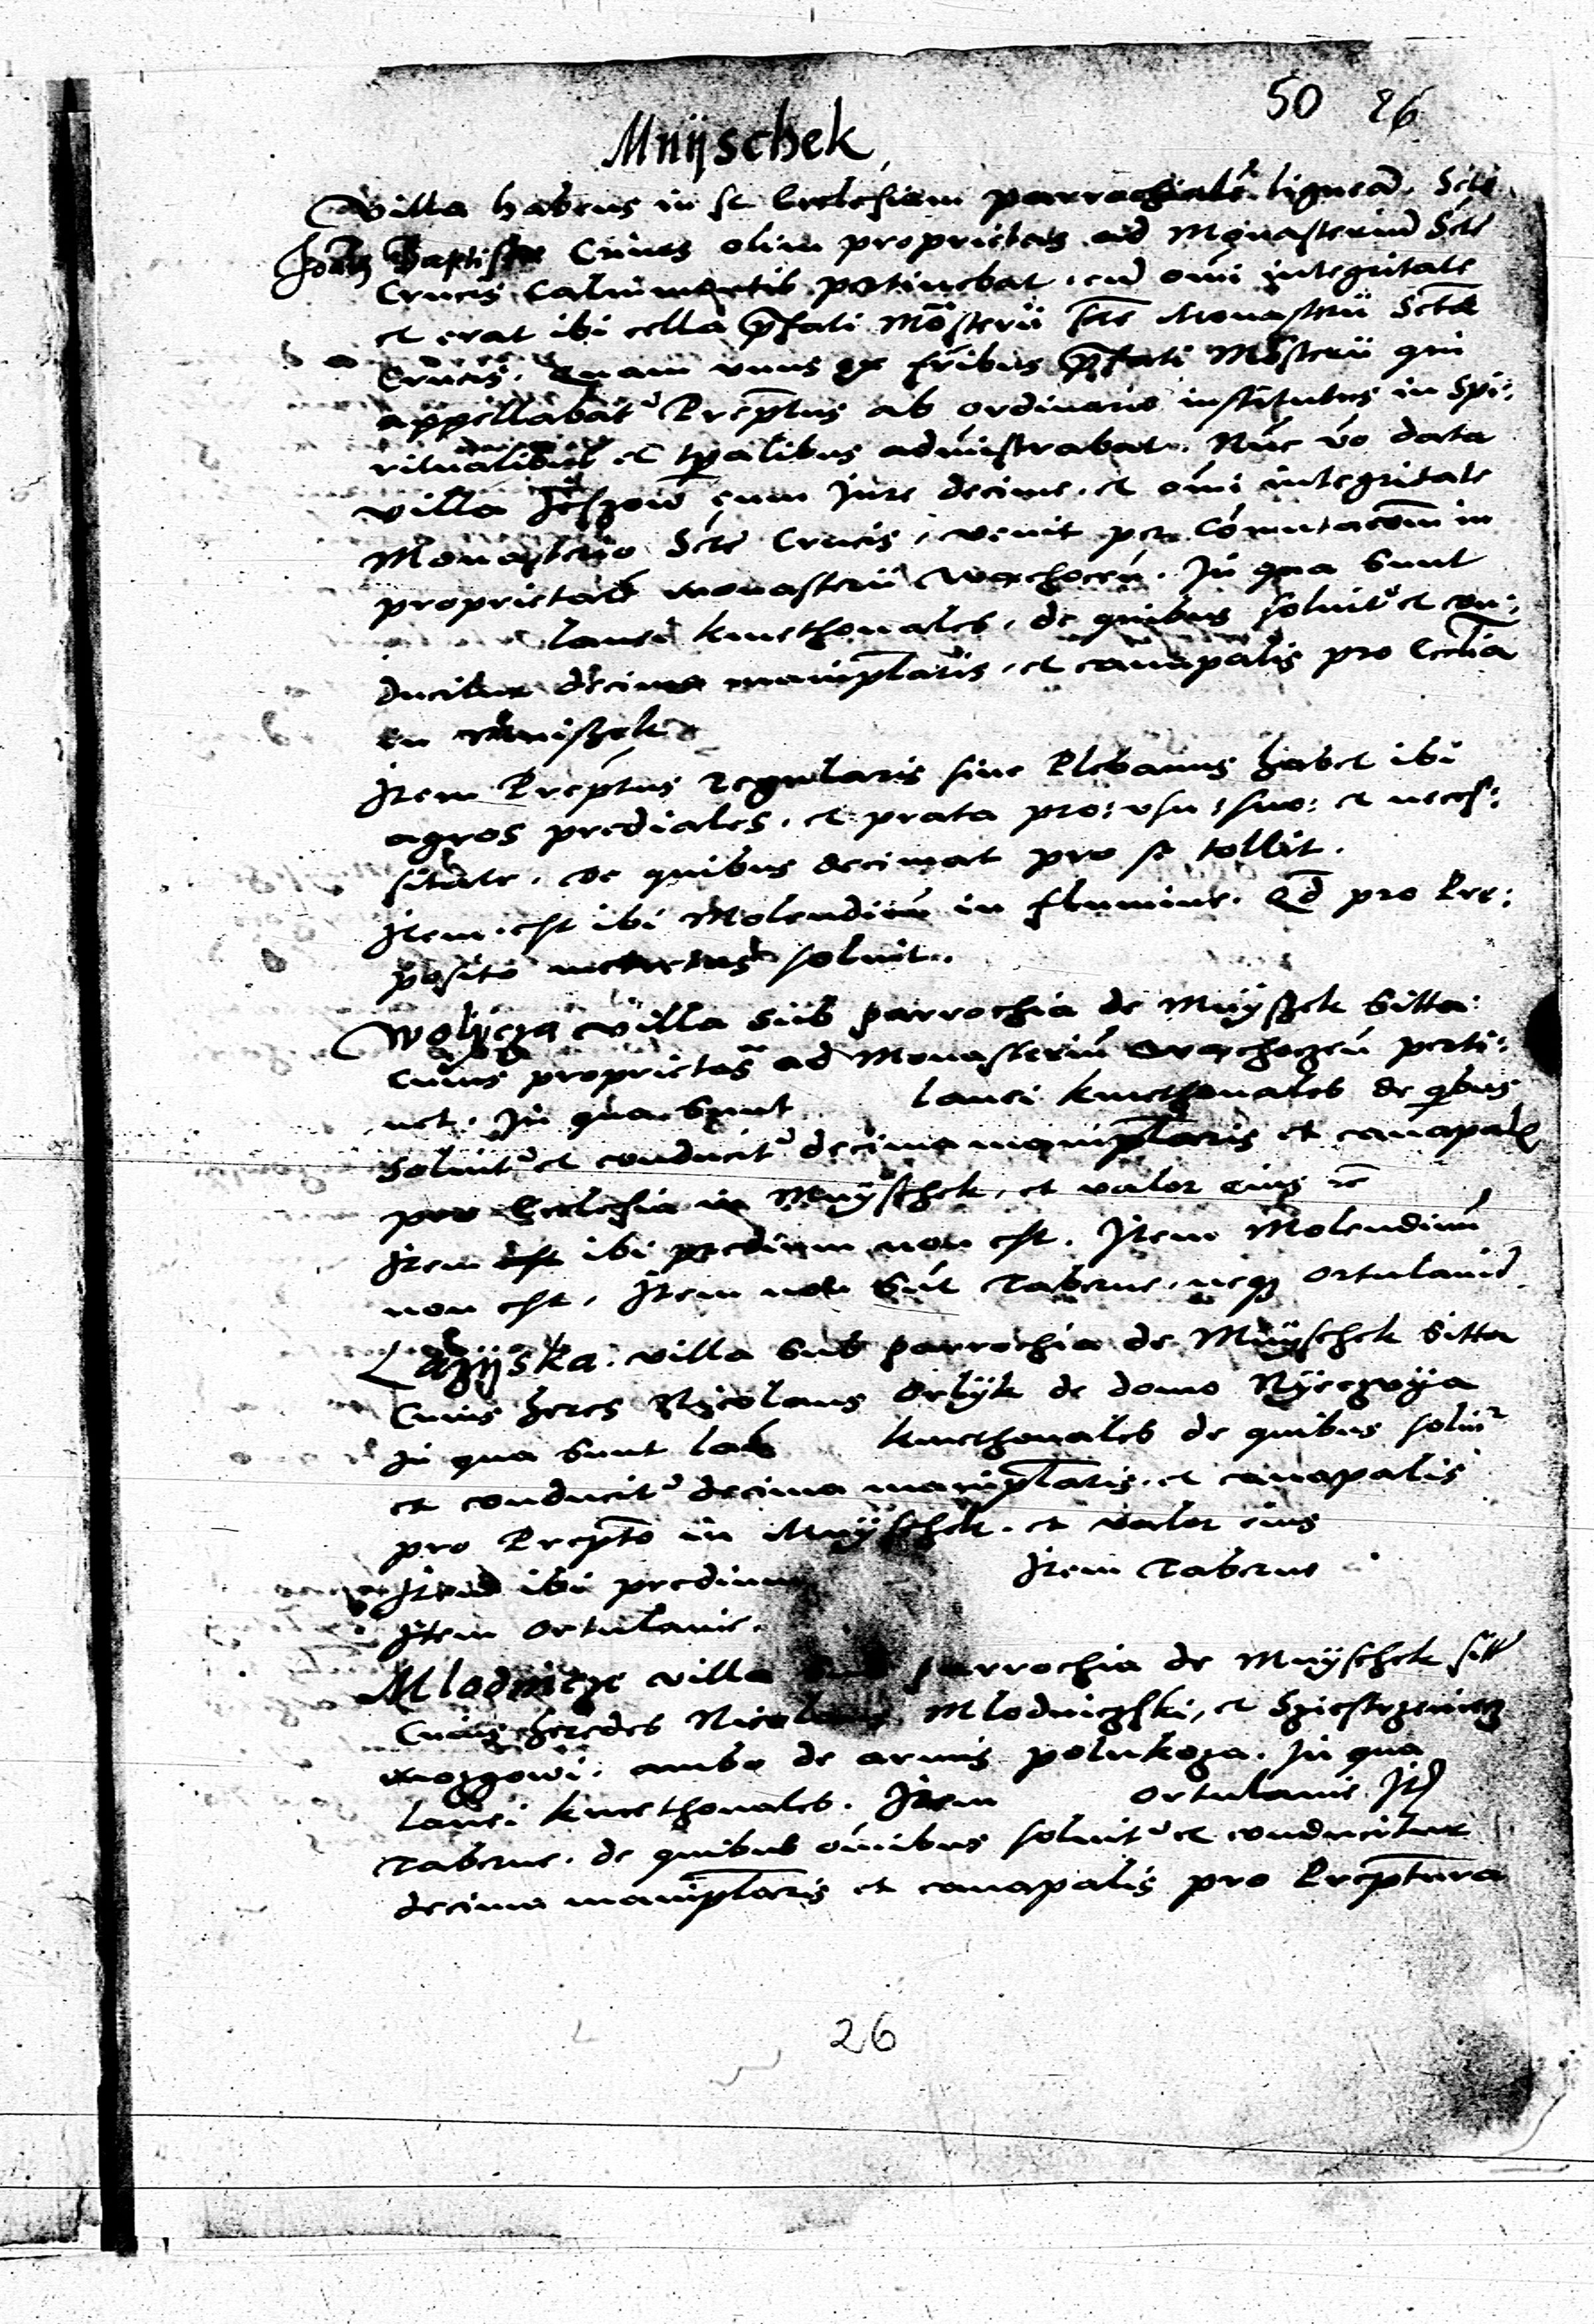 50 26
Mnÿschek
Villa habens in se Ecclesiam parrochialē ligneā. Scti
Joānis Baptiste Cuius olim proprietas ad Monasteriū Scte
Crucis Caluimontis pertinebat. cū omī integritate
et erat ibi cella p̄fati Mōsterii Monasterii Scte
Crucis. Quam vnus ex fr̄ibus p̄fati Mōsterii qui
appellabatᵘ Prep̄tus ab ordinario institutus in Spi:
ritualibus et tp̄alibus admistrabat. Nūc vo data
villa cum Jure decime. et omī integritate
Monasterio Scte Crucis, venit per Comutacōm in
proprietatē monasterii Wachocen. In qua sunt
lanei kmethonales, de quibus soluitᵘ et con:
ducitur decima manip̄laris, et canapalis pro Eccl̄ia
in Mniszek
Item Prep̄tus regularis siue Plebanus habet ibi
agros prediales. et prata pro: vsu: suo: et neces:
sitate. de quibus decimat pro se tollit.
Item est ibi Molendinū in flumine. Qd̄ pro Pre:
posito soluit.
Wolÿcza villa sub parrochia de Mnÿszek Sitta:
Cuius proprietas ad Monasteriū Wachoczen perti:
net. In qua sunt lanei kmethonales de qbus
Soluitᵘ et conducitᵘ decima manip̄laris et canapal
pro Ecclesia in Mnÿschek, et valor eius
Item est ibi predium non est. Item Molendinū
non est, Item non sūt Taberne, neqȝ ortulanie
Lazÿska. villa sub parrochia de Mnÿschek Sitta
Cuius heres Nicolaus Orlÿk de domo Nÿeczvÿa
In qua sunt lan kmethonales de quibus soluiᵗ
et conducitᵘ decima manip̄laris. et canapalis
pro Prep̄to in Mnÿschek. et valor eius
Item ibi predium Item Taberne
Item ortulanie.
Mlodnicze villa sub parrochia de Mnÿschek sitt
Cuius heredes Nicolaus Mlodniczski, et
mozgowi. ambo de armis polukoza. In qua
lanei kmethonales. Item ortulanie It
Taberne. de quibus omībus soluitᵘ et conducitur
decima manip̄laris et canapalis pro Prep̄tura
26